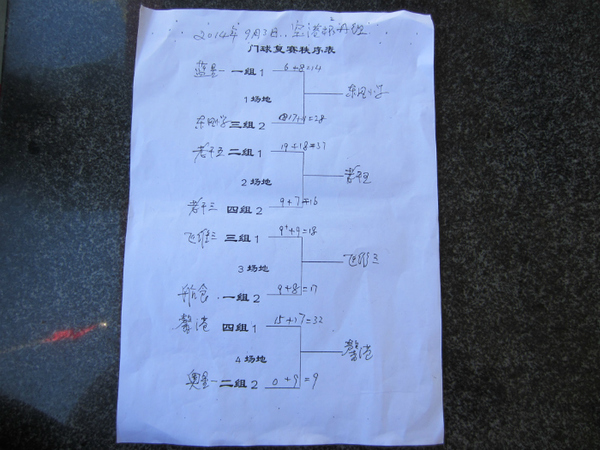 2014年9月3日..空港杯A组
门球复赛秩序表
蓝星 一组 1 6+8=14
1 场地 东丽小学
东丽小学 三组 2 17+11=28
老干五 二组 1 19+18=37
2 场地 老干五
老干三 四组 2 9+7=16
飞维三 三组 1 9+9=18
3 场地 飞维三
航食 一组 2 9+8=17
馨港 四组 1 15+17=32
4 场地 馨港
奥星一 二组 2 0+9=9